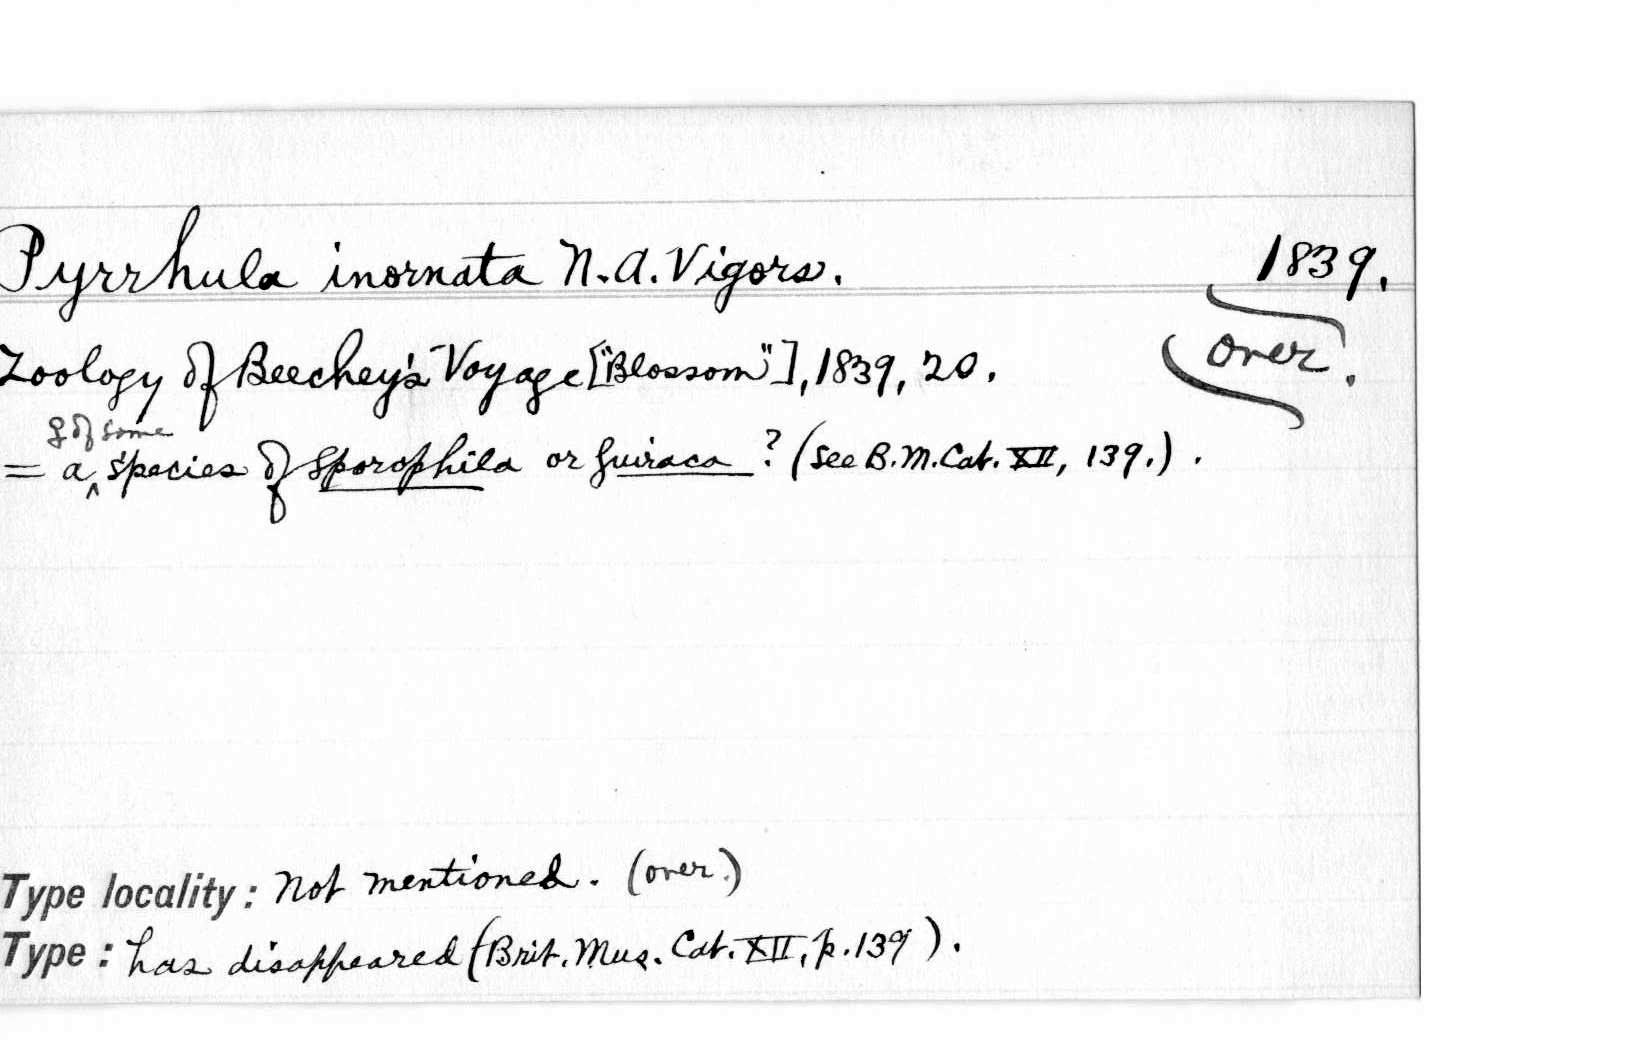 Pyrrhula inornata N.A. Vigors. 1839.
(over).
Zoology of Beechey's Voyage ["Blossom"], 1839, 20.
♀ of some
= a ‸ species of Sporophila or Guiraca? (See B.M. Cat. XII, 139.).
Type locality: Not mentioned. (over.)
Type: has disappeared (Brit. Mus. Cat. XII, p. 139).